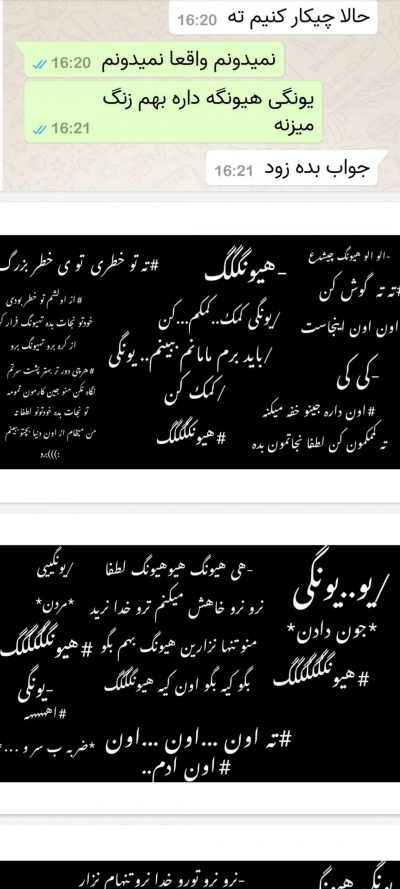 حالا چیکار کنیم ته
16:20
نمیدونم واقعا نمیدونم
16:20
یونگی هیونگه داره بهم زنگ
میزنه
16:21
جواب بده زود
16:21
-الو الو هیونگ چیشدع
#ته ته گوش کن
اون اون اینجاست
-کی کی
#اون داره جینو خفه میکنه
ته کمکمون کن لطفا نجاتمون بده
-هیونگگگ
/یونگی کمک..کمکم...کن
/باید برم مامانم ببینم.. یونگی
/کمک کن
#هیونگگگگگ
#ته تو خطری تو ی خطر بزرگ
#از اولشم تو خطر بودی
خودتو نجات بده تهیونگ فرار ک
از کره برو تهیونگ برو
#هرچی دور تر بهتر پشت سرتم
نگاه نکن منو جین کارمون تمومه
تو نجات بده خودتونو لطفا ته
من میخام از اون دنیا بچتو ببینم
برو((((:
/یو..یونگی
*جون دادن*
#هیونگگگگگگ
-هی هیونگ هیوهیونگ لطفا
نرو نرو خاهش میکنم ترو خدا نرید
منو تنها نزارین هیونگ بهم بگو
بگو کیه بگو اون کیه هیونگگگگ
/یونگییی
*مردن*
#هیونگگگگگگ
-یونگی
#ته اون ...اون ...اون
*ضربه ب سر و ...*
#اون ادم..
-نرو نرو تورو خدا نرو تنهام نزار